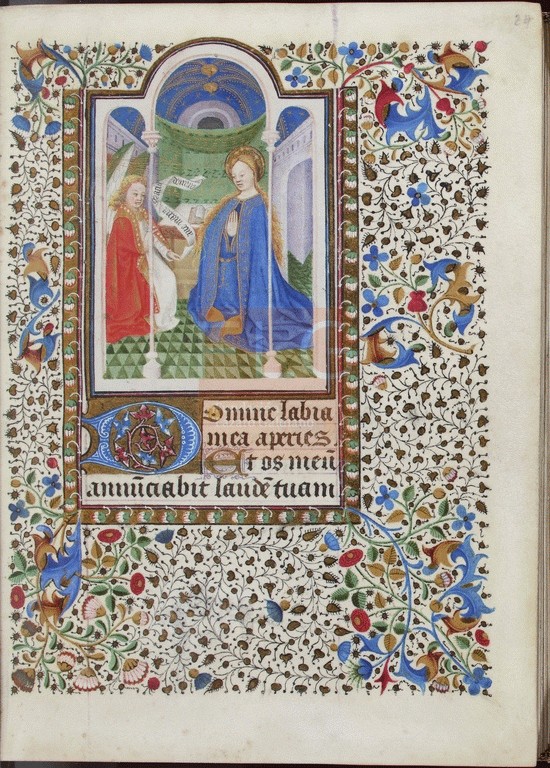 Domine labia
mea aperies.
Et os meū
annūciabit laudē tuam